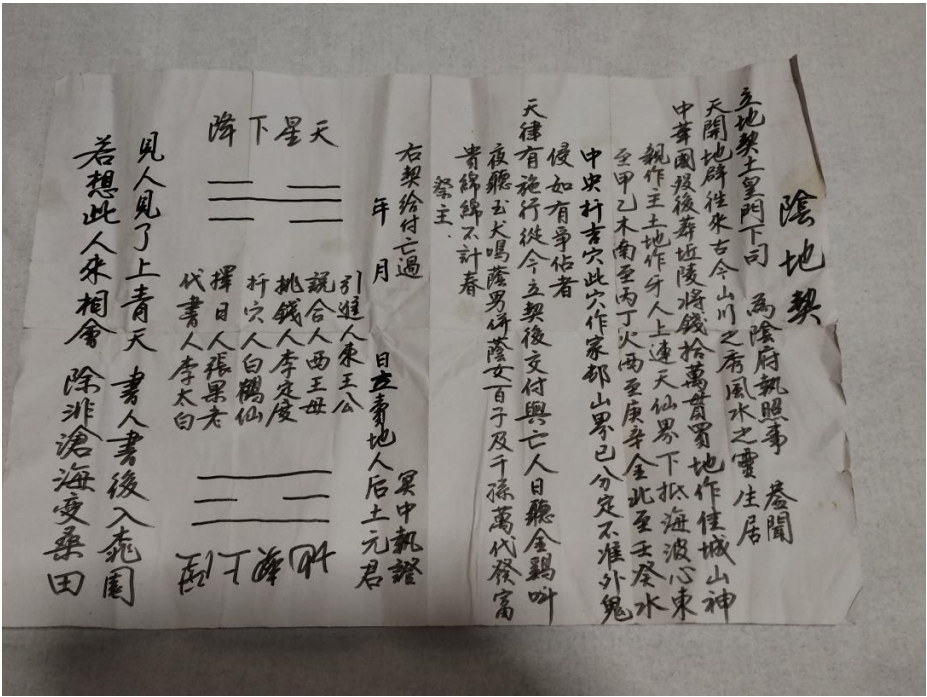 陰地契
立地契土皇門下司 為陰府執照事 蓋聞
天開地辟往來古今山川之秀風水之靈生居
中華國歿後葬近陵將錢拾萬貫買地作佳城山神
親作主土地作牙人上連天仙界下抵海波心東
至甲乙木南至丙丁火西至庚辛金北至壬癸水
中央扦吉穴此穴作家邨山界已分定不准外鬼
侵如有爭佔者
天律有施行從今立契後交付與亡人日聽金鷄叫
夜聽玉犬鳴蔭男併蔭女百子及千孫萬代發富
貴綿綿不計春
祭主.
右契給付亡過 冥中執證
年 月 日立賣地人后土元君
天星下降
引進人東王公
說合人西王母
挑錢人李定度
扦穴人白鶴仙
擇日人張果老
代書人李太白
見人見了上青天 書人書後入桃園
若想此人來相會 除非滄海變桑田